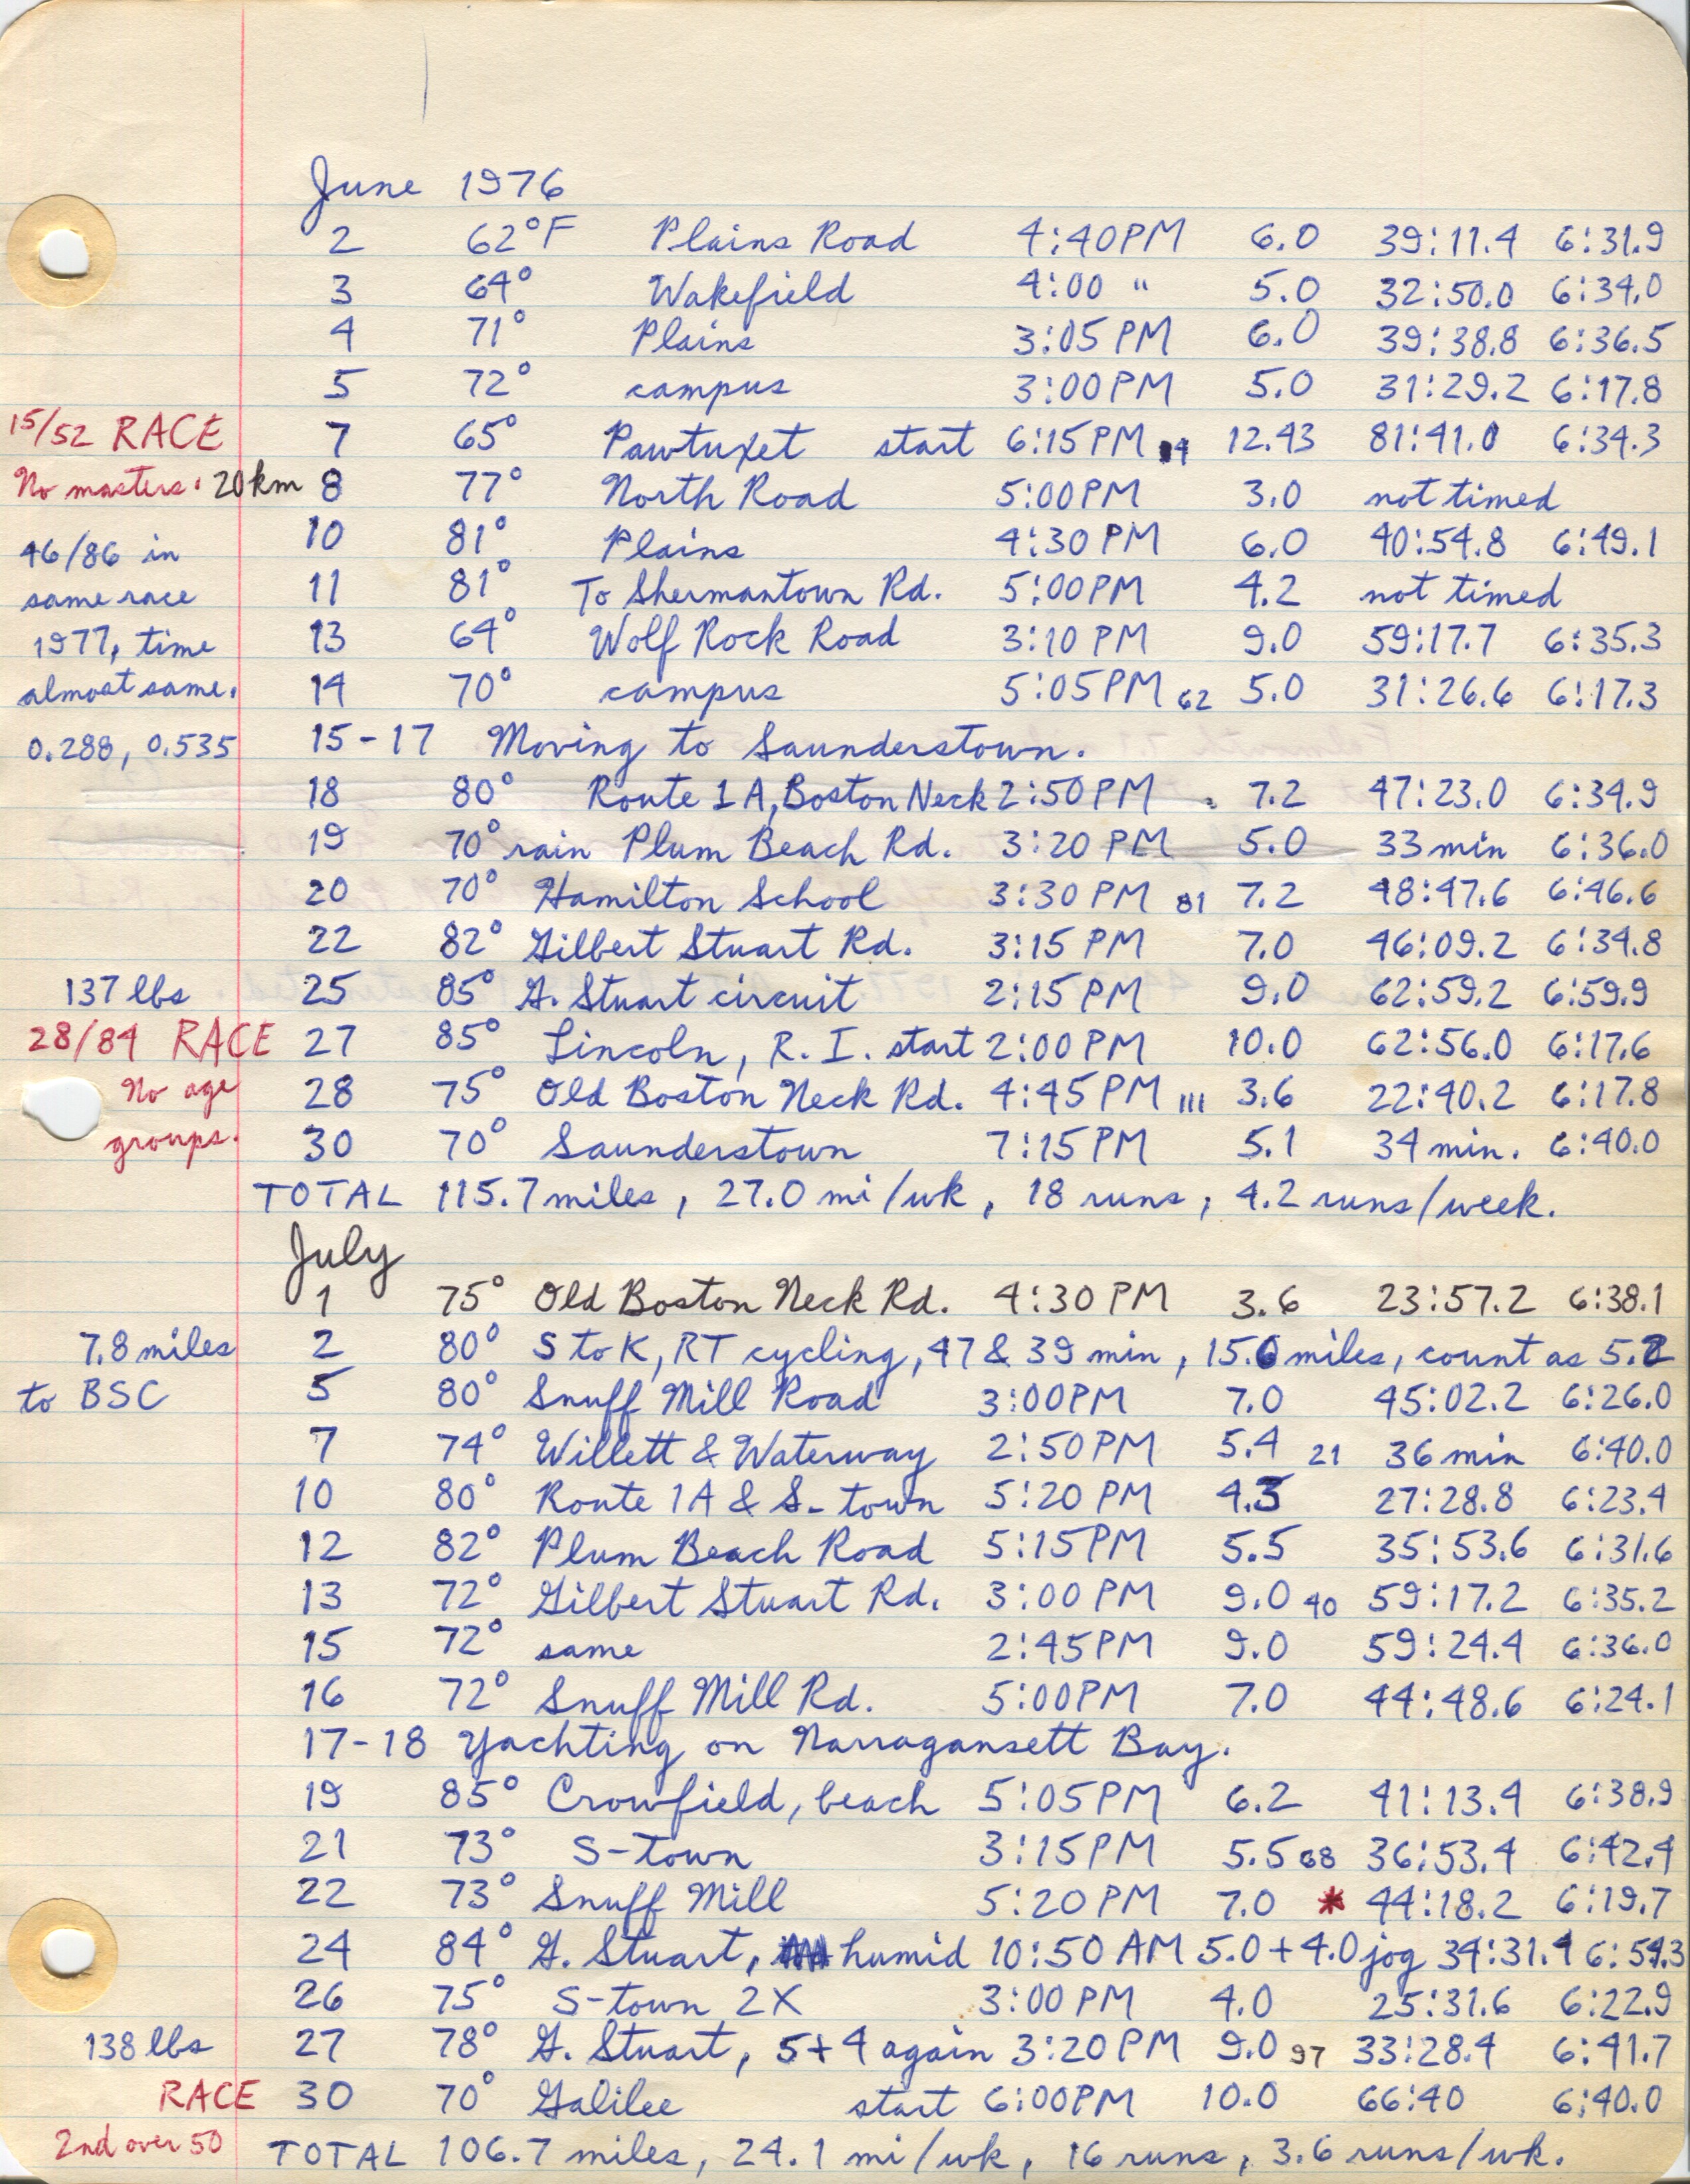 June 1976
2 62°F Plains Road 4:40PM 6.0 39:11.4 6:31.9
3 64° Wakefield 4:00 " 5.0 32:50.0 6:34.0
4 71° Plains 3:05 PM 6.0 39:38.8 6:36.5
5 72° campus 3:00PM 5.0 31:29.2 6:17.8
15/52 RACE 7 65° Pawtuxet start 6:15PM 12.43 81:41.0 6:34.3
No masters. 20km 8 77° North Road 5:00PM 3.0 not timed
46/86 in 10 81° Plains 4:30 PM 6.0 40:54.8 6:49.1
same race 11 81° To Shermantown Rd. 5:00PM 4.2 not timed
1977, time 13 64° Wolf Rock Road 3:10 PM 9.0 59:17.7 6:35.3
almost same. 14 70° campus 5:05PM 62 5.0 31:26.6 6:17.3
0.288, 0.535 15-17 Moving to Saunderstown.
18 80° Route 1A, Boston Neck 2:50PM 7.2 47:23.0 6:34.9
19 70° rain Plum Beach Rd. 3:20 PM 5.0 33 min 6:36.0
20 70° Hamilton School 3:30 PM 81 7.2 48:47.6 6:46.6
22 82° Gilbert Stuart Rd. 3:15 PM 7.0 46:09.2 6:34.8
137 lbs 25 85° G. Stuart circuit 2:15 PM 9.0 62:59.2 6:59.9
28/84 RACE 27 85° Lincoln, R. I. start 2:00PM 10.0 62:56.0 6:17.6
No age 28 75° Old Boston Neck Rd. 4:45PM 111 3.6 22:40.2 6:17.8
groups. 30 70° Saunderstown 7:15PM 5.1 34 min. 6:40.0
TOTAL 115.7 miles, 27.0 mi/wk, 18 runs, 4.2 runs/week.
July
1 75° Old Boston Neck Rd. 4:30 PM 3.6 23:57.2 6:38.1
7.8 miles 2 80° S to K, RT cycling, 47 & 39 min, 15.6 miles, count as 5.2
to BSC 5 80° Snuff Mill Road 3:00PM 7.0 45:02.2 6:26.0
7 74° Willett & Waterway 2:50PM 5.4 21 36 min 6:40.0
10 80° Route 1A & S-town 5:20 PM 4.3 27:28.8 6:23.4
12 82° Plum Beach Road 5:15PM 5.5 35:53.6 6:31.6
13 72° Gilbert Stuart Rd. 3:00 PM 9.0 40 59:17.2 6:35.2
15 72° same 2:45PM 9.0 59:24.4 6:36.0
16 72° Snuff Mill Rd. 5:00PM 7.0 44:48.6 6:24.1
17-18 Yachting on Narragansett Bay.
19 85° Crowfield, beach 5:05PM 6.2 41:13.4 6:38.9
21 73° S-town 3:15PM 5.5 68 36:53.4 6:42.4
22 73° Snuff Mill 5:20PM 7.0 * 44:18.2 6:19.7
24 84° G. Stuart, humid 10:50 AM 5.0 + 4.0 jog 34:31.4 6:54.3
26 75° S-town 2X 3:00 PM 4.0 25:31.6 6:22.9
138 lbs 27 78° G. Stuart, 5+4 again 3:20PM 9.0 97 33:28.4 6:41.7
RACE 30 70° Galilee start 6:00PM 10.0 66:40 6:40.0
2nd over 50 TOTAL 106.7 miles, 24.1 mi/wk, 16 runs, 3.6 runs/wk.